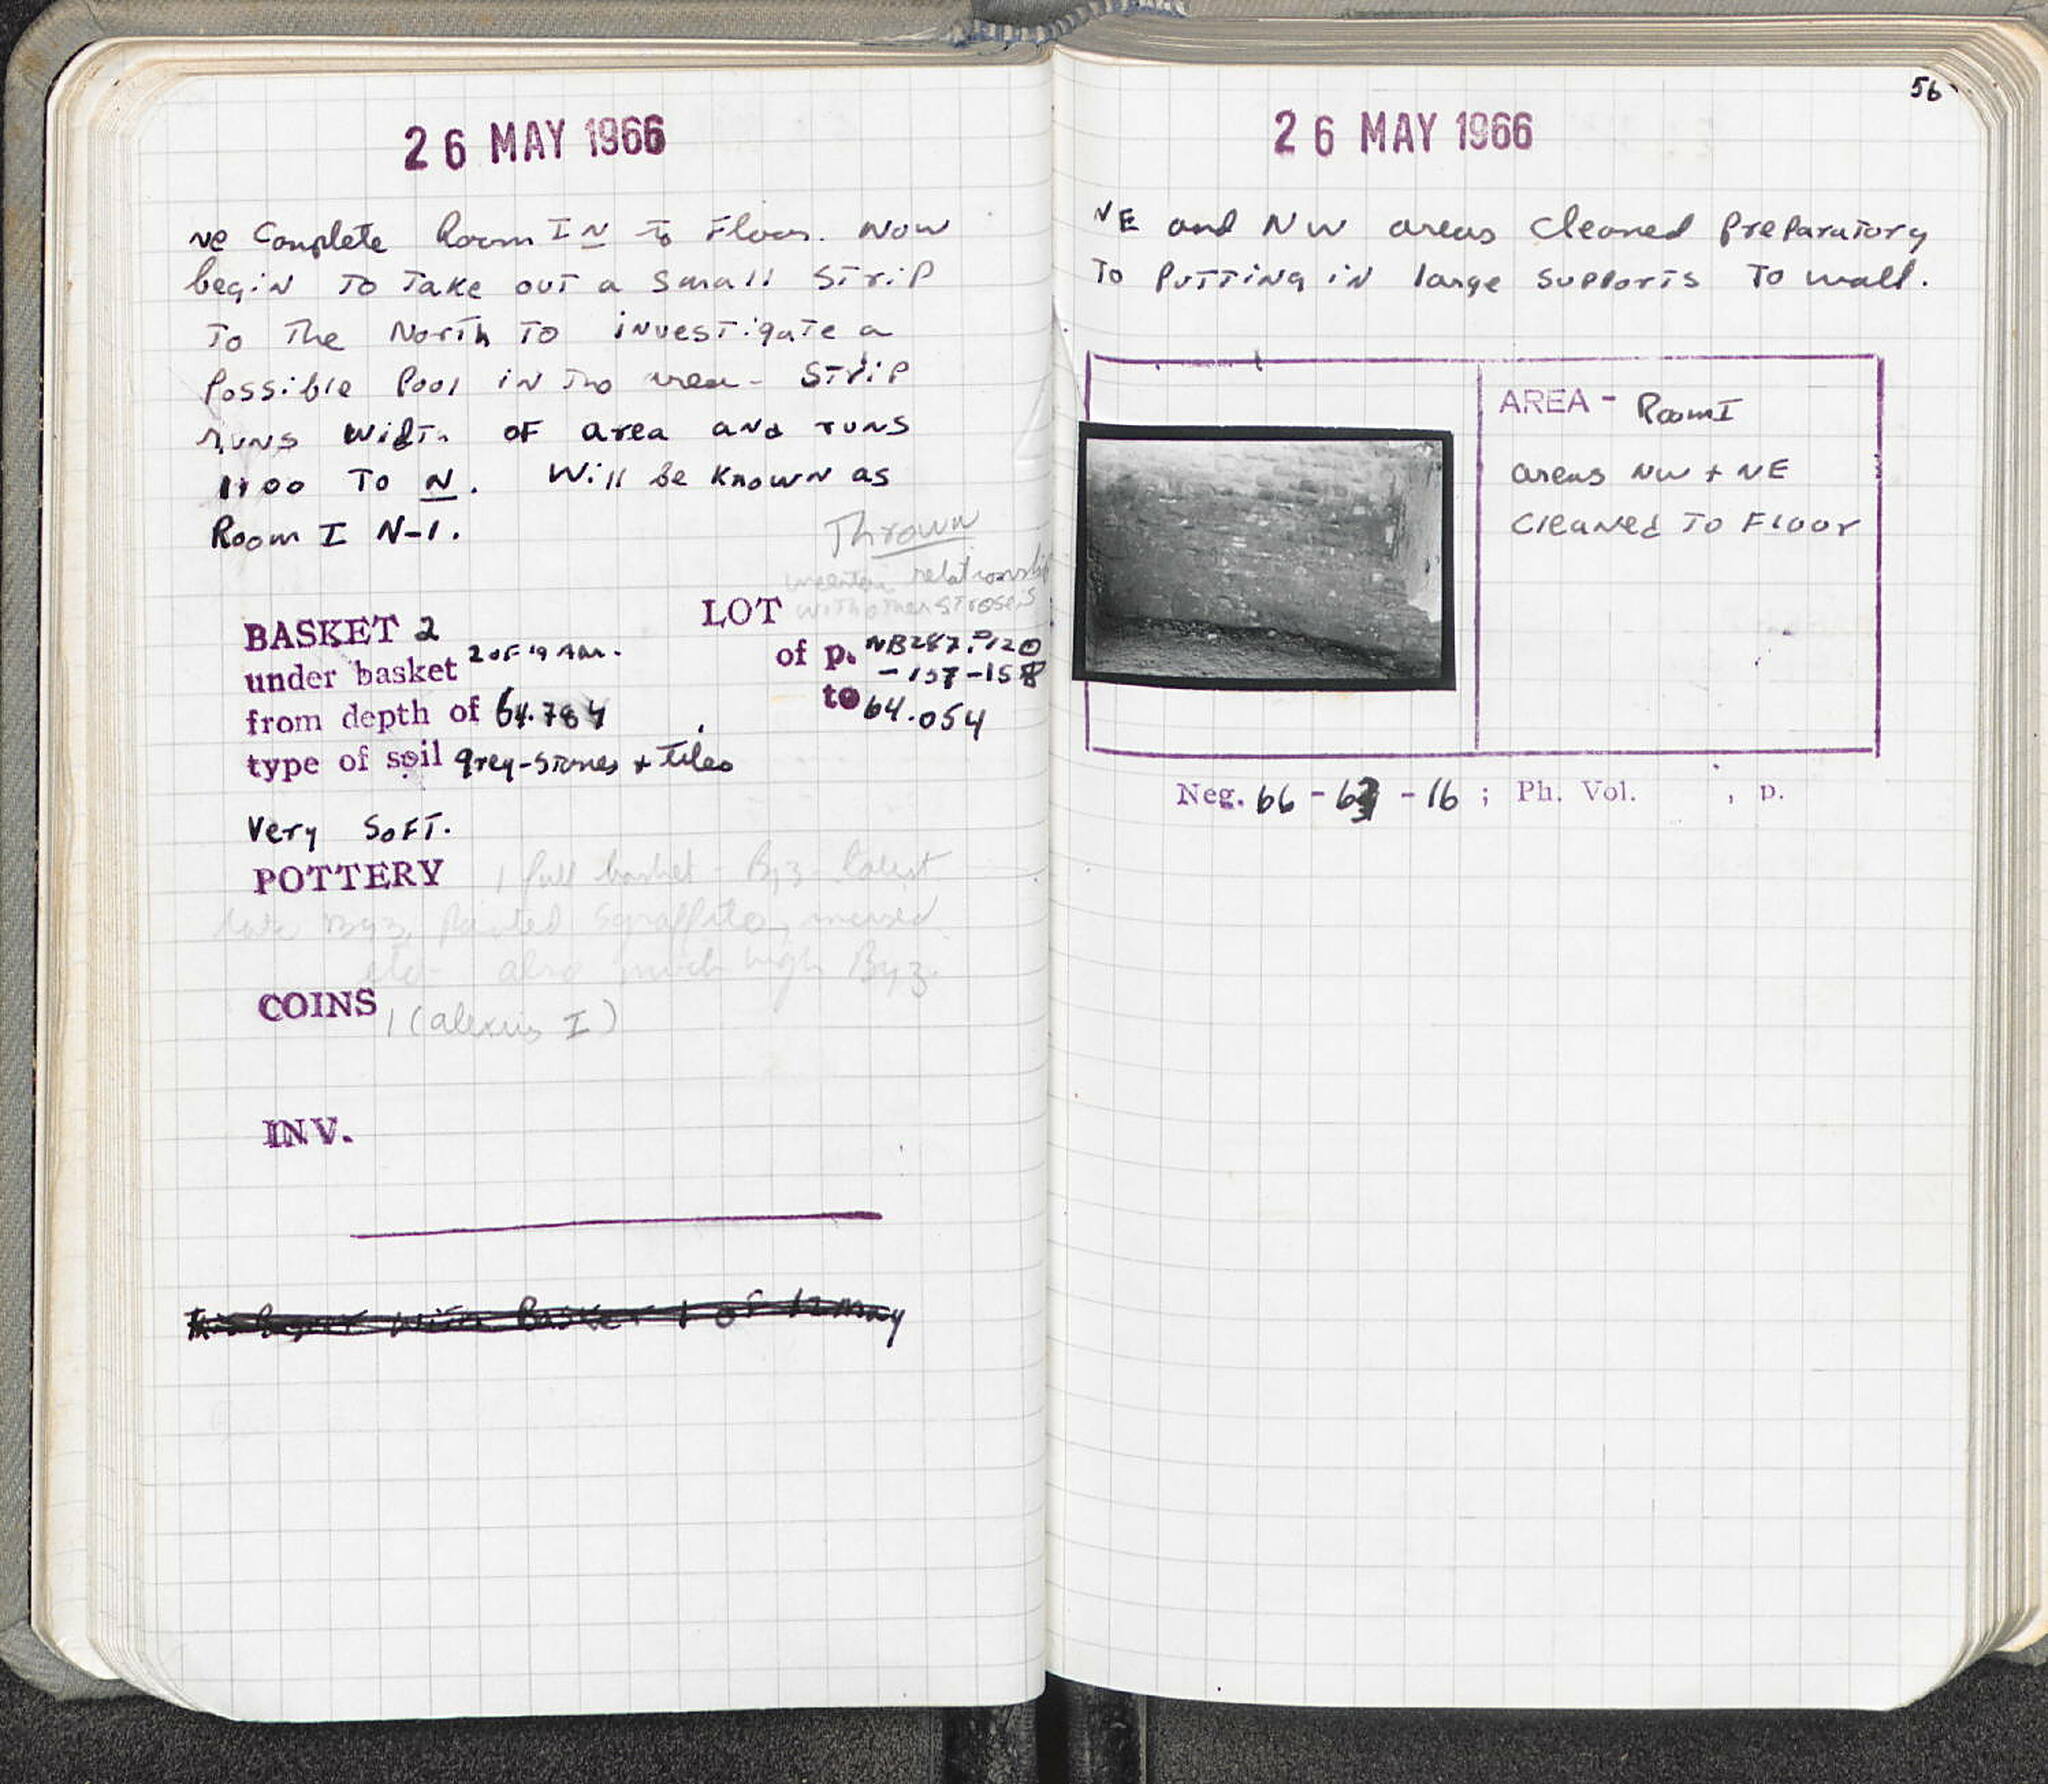 26 MAY 1966
We Complete Room I N to Floor. Now
begin to take out a small strip
to the North to investigate a
possible pool in the area - strip
runs width of area and runs
1.00 to N. Will be known as
Room I N-1.
Thrown
uncertain relationship
with other stroses
BASKET 2 LOT
under basket 2 of 19 Mar. of p. NB287.P120
-157-158
from depth of 64.784 to 64.054
type of soil grey-stones + tiles
Very soft.
POTTERY 1 full basket - Byz latest
late Byz, Painted Sgraffito, incised
etc - also much high Byz.
COINS 1 (alexius I)
INV.
with Basket 1 of 12 May
56
26 MAY 1966
NE and NW areas cleaned preparatory
to putting in large supports to wall.
AREA - Room I
areas NW + NE
cleaned to Floor
Neg. 66 - - 16 ; Ph. Vol. , p.